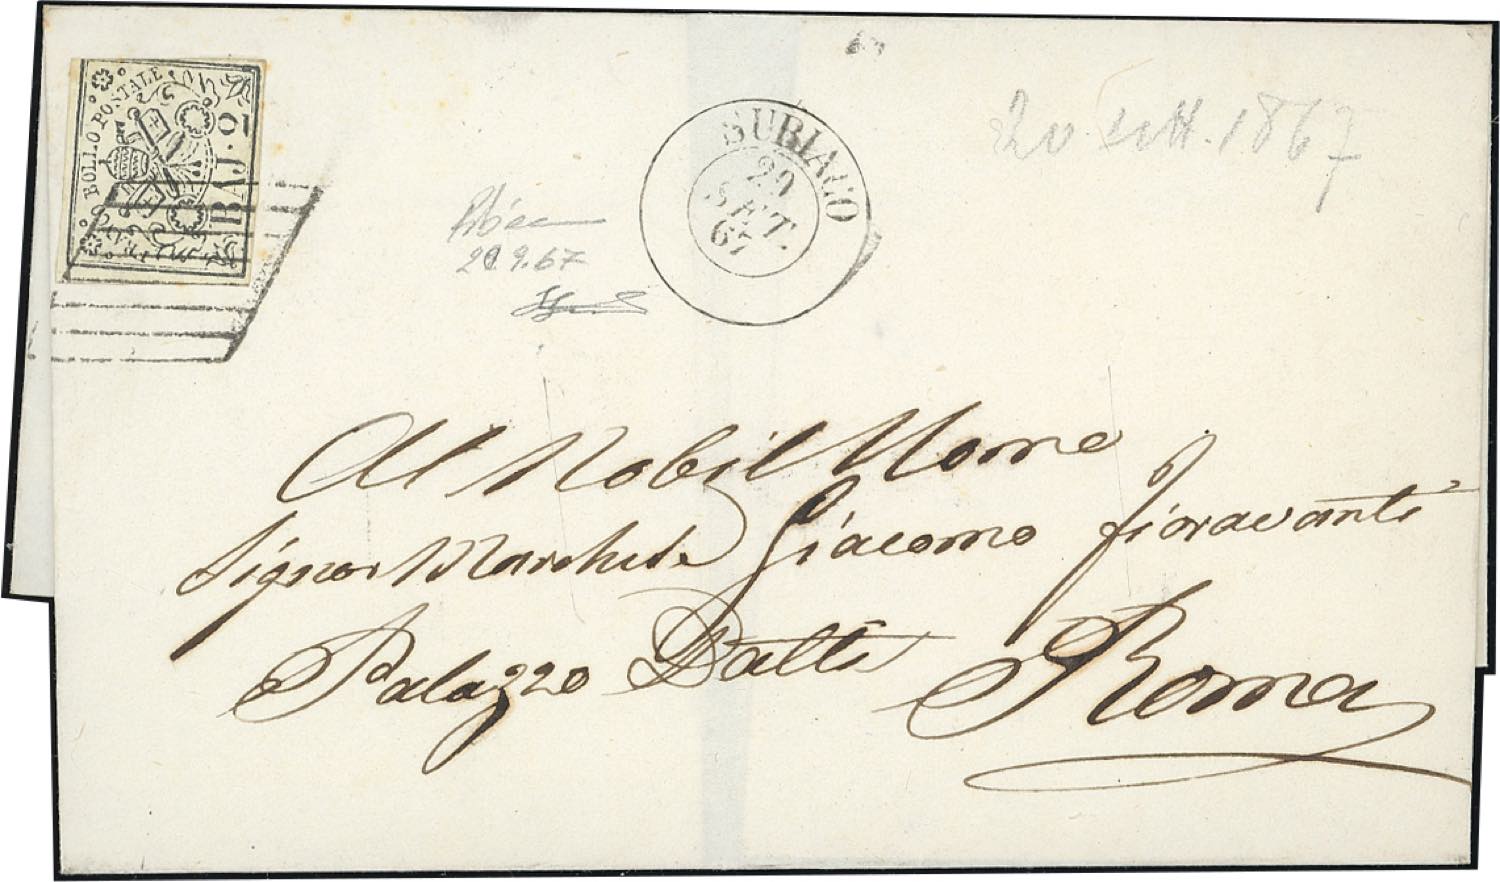 BOLLO POSTALE
BAJ. 2
SUBIACO
20
SET.
67
20 sett. 1867
20.9.67
Al Nobil Uomo
Signor Marchese Giacomo Fioravanti
Palazzo Datti Roma